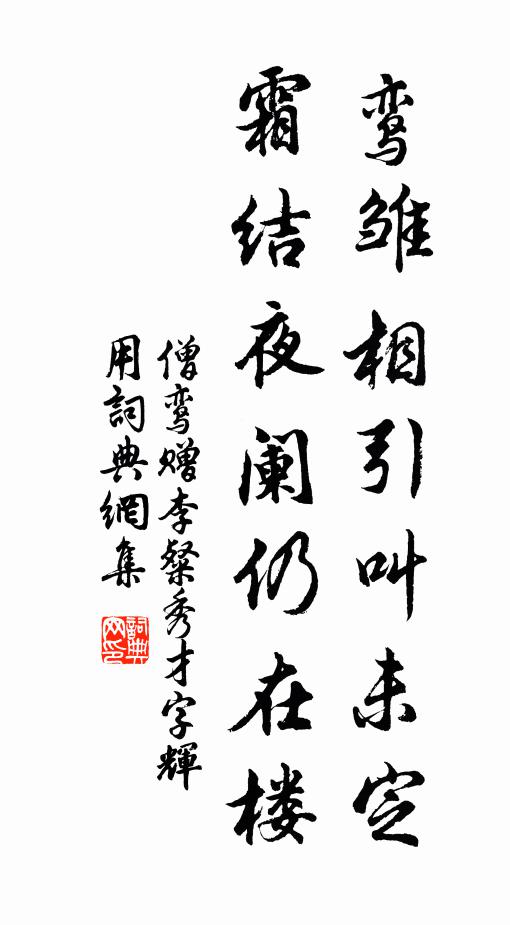 鸾雏相引叫未定
霜结夜阑仍在楼
僧鸾赠李粲秀才字輝
用詞典網集
詞典网印